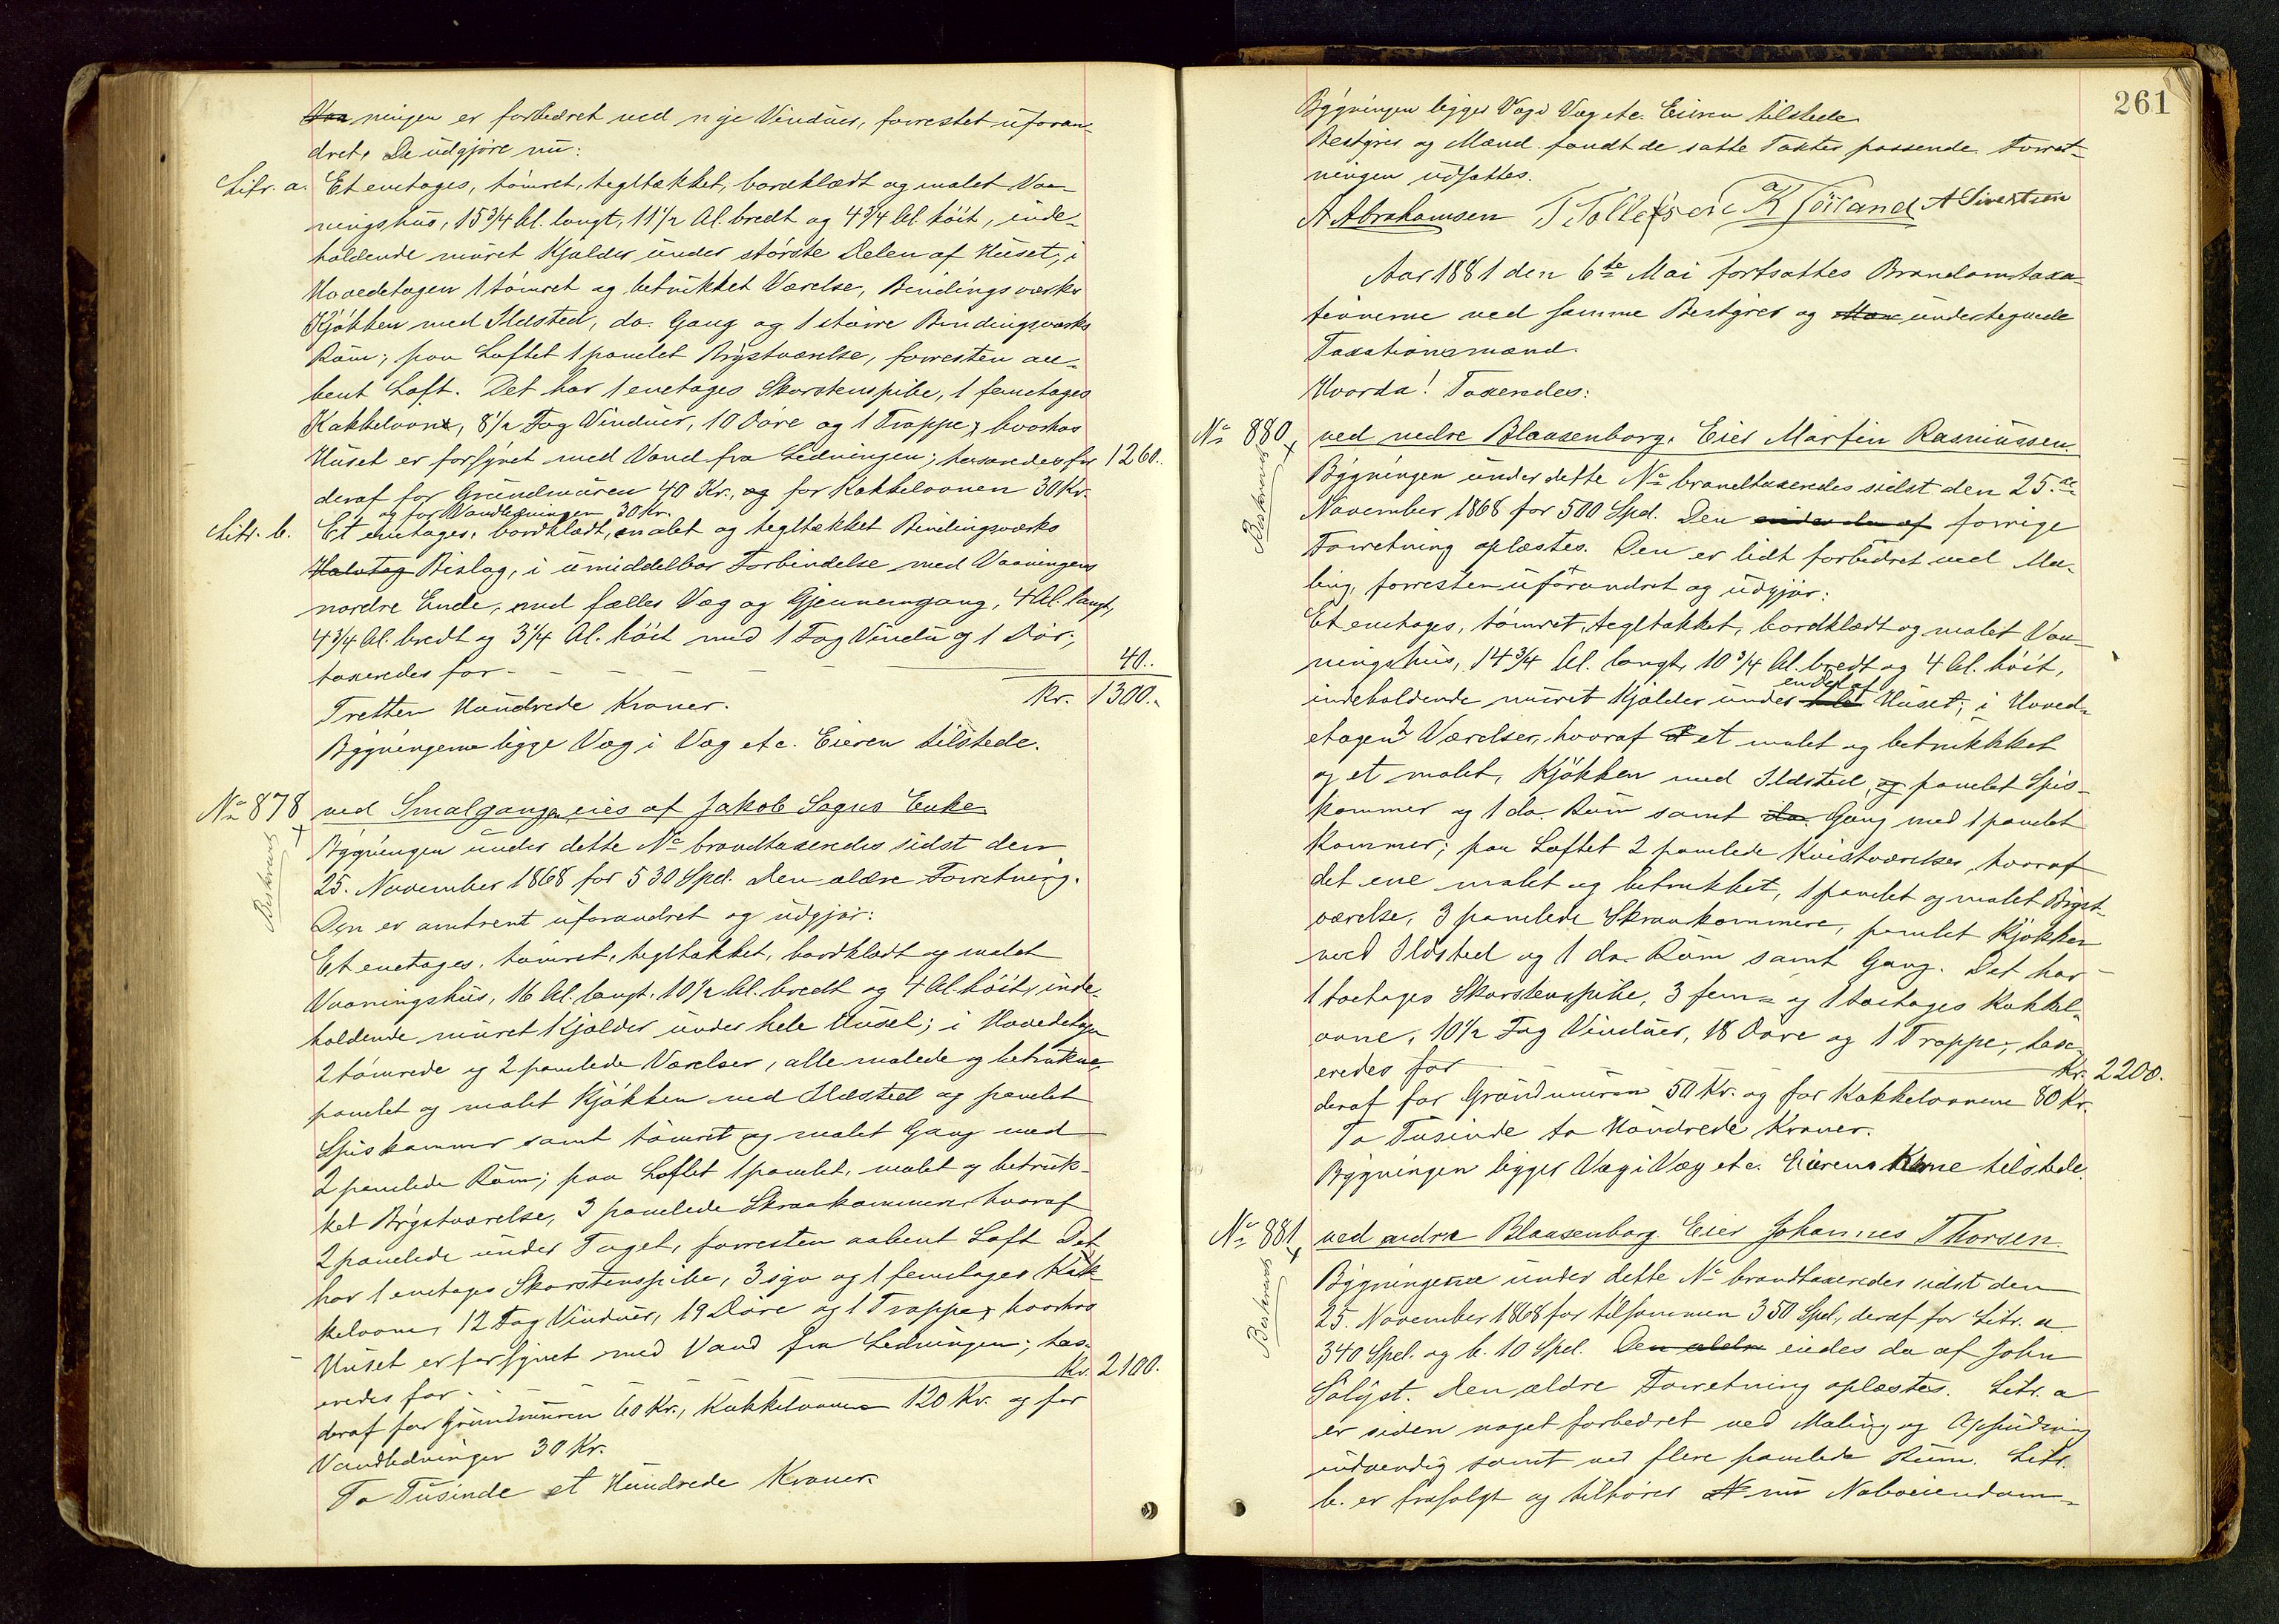 ningen er forbedret ved nye Vinduer, forrestet uforan-
dret. De udgjöre nu:
Litr. a. Et enetages, tömret, tegltækket, bordklædt og malet Vaa-
ningshus, 15 3/4 Al. langt, 11 1/2 Al. bredt og 4 3/4 Al. höit, inde-
holdende muret Kjælder under störste Delen af Huset; i
Hovedetagen 1 tömret og betrukket Værelse, Bindingsværks
Kjökken med Ildsted, do. Gang og 1 större Bindingsværks
Rum; paa Loftet 1 panelet Brystværelse, forresten aa-
bent Loft. Det har 1 enetages Skorstenspibe, 1 femetages
Kakkelovn, 8 1/2 Fag Vinduer, 10 Döre og 1 Trappe, hvorhos
Huset er forsynet med Vand fra Ledningen; taxeredes for 1260..
deraf for Grundmuren 40 Kr., og for Kakkelovnen 30 Kr.
og for Vandledningen 30 Kr.
Litr. b. Et enetages, bordklædt, malet og tegltækket Bindingsværks
Halvtag Bislag, i umiddelbar Forbindelse med Vaaningens
nordre Ende, med fælles Væg og Gjennemgang, 4 Al. langt,
4 3/4 Al. bredt og 3 1/4 Al. höit med 1 Fag Vindu og 1 Dör;
taxeredes for - - - - 40..
Tretten Hundrede Kroner. Kr. 1300..
Bygningerne ligge Væg i Væg etc. Eieren tilstede.
No 878 ved Smalgangen, eies af Jakob Sagus Enke
Beskrevet
Bygningen under dette No brandtaxeredes sidst den
25. November 1868 for 530 Spd. Den ældre Forretning.
Den er omtrent uforandret og udgjör:
Et enetages, tömret, tegltækket, bordklædt og malet
Vaaningshus, 16 Al. langt, 10 1/2 Al. bredt og 4 Al. höit, inde-
holdende muret Kjælder under hele Huset; i Hovedetagen
2 tömrede og 2 panelede Værelser, alle malede og betrukne,
panelet og malet Kjökken med Ildsted og panelet
Spiskammer samt tömret og malet Gang med
2 panelede Rum; paa Loftet 1 panelet, malet og betruk-
ket Brystværelse, 3 panelede Skraakammere, hvoraf
2 panelede under Taget, forresten aabent Loft Det
har 1 enetages Skorstenspibe, 3 syv og 1 femetages Kak-
kelovne, 12 Fag Vinduer, 19 Döre og 1 Trappe, hvorhos
Huset er forsynet med Vand fra Ledningen; tax-
eredes for - - - - Kr. 2100.
deraf for Grundmuren 60 Kr., Kakkelovnene 120 Kr. og for
Vandledningen 30 Kr.
To Tusinde et Hundrede Kroner.
261
Bygningen ligger Væg i Væg etc. Eieren tilstede
Bestyrer og Mænd fandt de satte Taxter passende. Forret-
ningen udsattes.
A Abrahamsen T. Tollefsen K Förland A Sivertsen
Aar 1881 den 6te Mai fortsattes Brandomtaxa-
tionerne ved samme Bestyrer og undertegnede
Taxationsmænd.
Hvorda! Taxeredes:
No 880 ved nedre Blaasenborg. Eier Martin Rasmussen.
Beskrevet
Bygningen under dette No brandtaxeredes sidst den 25.de
November 1868 for 500 Spd. Den eiedes da af forrige
Forretning oplæstes. Den er lidt forbedret ved Ma-
ling, forresten uforandret og udgjör:
Et enetages, tömret, tegltækket, bordklædt og malet Vaa-
ningshus, 14 3/4 Al. langt, 10 3/4 Al. bredt og 4 Al. höit,
en Del af
indeholdende muret Kjælder under Huset; i Hoved-
etagen 2 Værelser, hvoraf et malet og betrukkket
og et malet, Kjökken med Ildsted, og panelet Spis-
kammer og 1 do. Rum samt do. Gang med 1 panelet
Kammer; paa Loftet 2 panelede Kvistværelser, hvoraf
det ene malet og betrukket, 1 panelet og malet Bryst-
værelse, 3 panelede Skraakammere, panelet Kjökken
med Ildsted og 1 do. Rum samt Gang. Det har
1 toetages Skorstenspibe, 3 fem- og 1 toetages Kakkel-
ovne, 10 1/2 Fag Vinduer, 18 Döre og 1 Trappe; taxe-
redes for Kr. 2200.
deraf for Grundmuren 50 Kr. og for Kakkelovnene 80 Kr.
To Tusinde to Hundrede Kroner.
Bygningen ligger Væg i Væg etc. Eierens Kone tilstede.
No 881 ved nedre Blaasenborg. Eier Johannes Thorsen.
Beskrevet
Bygningerne under dette No brandtaxeredes sidst den
25. November 1868 for tilsammen 350 Spd., deraf for Litr. a
340 Spd. og b. 10 Spd. Den ældre eiedes da af John
Sölyst. Den ældre Forretning oplæstes. Litr. a
er siden noget forbedret ved Maling og Afpudsning
indvendig samt ved flere panelede Rum. Litr.
b. er frasolgt og tilhörer nu Naboeiendom-